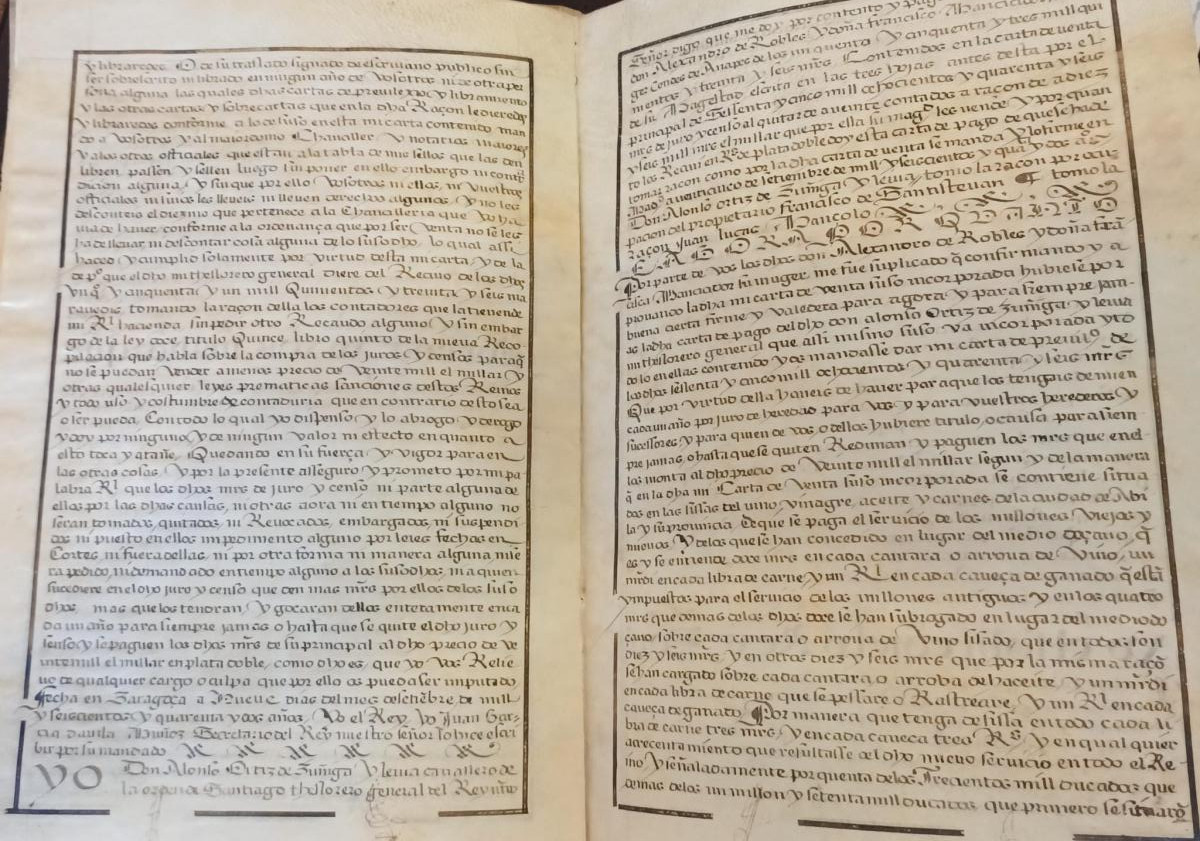 y librareges. O de su traslado signado de escrivano publico sin
ser sobrescrito ni librado en ningun año de Vosotros ni de otra per
sona alguna las quales dhas cartas de previlexio y libramiento
y las otras cartas y sobrecartas que en la dha Raçon le dieredes
y libraredes conforme a lo de suso en esta mi carta contenido man
do a Vosotros y al maiordomo Chançiller y notarios maiores
y a los otros officiales que estan a la tabla de mis sellos que las den
libren passen y sellen luego sin poner en ello embargo ni contra
dicion alguna y sin que por ello Vosotros ni ellos, ni Vuestros
officiales ni unos les lleveis ni lleven derechos algunos, y no les
desconteis el diezmo que pertenece a la Chancilleria que yo ha
via de haver conforme a la ordenança que por ser Venta no se les
ha de llevar, ni descontar cosa alguna de lo susodho, lo qual assi
haced y cumplid solamente por virtud desta mi carta y de la
de pº que el dho mi thessorero general diere del Reciuo de los dhos
Vn qº y cinquenta y un mill Quinientos y treinta y seis ma
ravedis, tomando la raçon della los contadores que la tienen de
mi Rl hacienda sin pedir otro Recaudo alguno y sin embar
go de la ley doce titulo Quince libro quinto de la nueva Reco
pilacion que habla sobre la compra de los juros y censos para q
no se puedan Vender a menos precio de Veinte mill el millar y
otras qualesquier leyes prematicas sanciones destos Reinos
y todo uso y costumbre de contaduria que en contrario desto sea
o ser pueda, Con todo lo qual yo dispenso y lo abrogo y derogo
y doy por ninguno y de ningun valor ni efecto en quanto a
esto toca y atañe, Quedando en su fuerça y vigor para en
las otras cosas, y por la presente asseguro y prometo por mi pa
labra Rl que los dhos mrs de juro y censo ni parte alguna de
ellos por las dhas causas, ni otras aora ni en tiempo alguno no
seran tomados, quitados, ni Revocados, embargados, ni suspendi
dos ni puesto en ellos impedimento alguno por leies fechas en
Cortes ni fuera dellas, ni por otra forma ni manera alguna nue
ra pedido, ni demandado en tiempo alguno a los susodhos, ni a quien
sucediere en el dho juro y censo que den mas mrs por ellos de los suso
dhos, mas que los tendran, y goçaran dellos enteramente en ca
da un año para siempre jamas o hasta que se quite el dho juro y
senso y se paguen los dhos mrs de su principal al dho precio de Ve
inte mill el millar en plata doble, como dho es, que yo Vos Relie
uo de qualquier cargo o culpa que por ello os pueda ser imputado,
fecha en Zaragoça a Nueve dias del mes de setiebre de mill
y seiscientos y quarenta y dos años, Yo el Rey, Yo Juan Gar
cia davila Muñoz Secretario del Rey nuestro señor lo hice escri
bir por su mandado
YO Don Alonso Ortiz de Zuñiga y leiva cavallero de
la orden de Santiago thessorero general del Rey nro
Señor digo, que me doy por contento y pag
don Alexandro de Robles y doña francisca Mancicidor
ges Condes de Anapes de los un quento y cinquenta y tres mill qui
nientos y treinta y seis mrs Contenidos en la carta de venta
de su Magestad, escrita en las tres hojas antes desta por el
principal de Sessenta y cinco mill ochocientos y quarenta y seis
mrs de juro y censo al quitar de a veinte contados a raçon de a diez
y seis mill mrs el millar que por ella su magd les vende y por quan
to los Recivi en Rs de plata doble doy esta carta de pago de que se ha de
tomar raçon como por la dha carta de venta se manda y lo firme en
Madd a veintiuno de setiembre de mill y seiscientos y quaº y dos aº
Don Alonso Ortiz de Zuñiga y leiva, tomo la raçon por ocu
pacion del propietario francisco de Santistevan ¶ tomo la
raçon Juan Lucas Mançolo
Por parte de vos los dhos don Alexandro de Robles y doña fran
cisca Mancicidor su muger, me fue suplicado q confirmando y a
provando la dha mi carta de venta suso incorporada hubiese por
buena cierta firme y Valedera para agora y para siempre jam
as la dha carta de pago del dho don alonso Ortiz de Zuñiga y leiva
mi thessorero general que assi mismo suso va incorporada y to
do lo en ellas contenido y os mandasse dar mi carta de previº de
los dhos sessenta y cinco mill ochocientos y quarenta y seis mrs
Que por virtud della haveis de haver para que los tengais de mi en
cada un año por juro de heredad para vos y para vuestros herederos y
sucessores y para quien de vos, o dellos hubiere titulo, o causa para siem
pre jamas, o hasta que se quiten Rediman y paguen los mrs que en el
los monta al dho precio de Veinte mill el millar segun y de la manera
q en la dha mi Carta de Venta suso incorporada se contiene situa
dos en las sissas del vino, vinagre, aceite y carnes de la ciudad de Avi
la y su provincia, de que se paga el servicio de los millones Viejos y
nuevos, y de los que se han concedido en lugar del medio doçavo, q
es y se entiende doce mrs en cada cantara o arrova de Vino, un
mrdi en cada libra de carne, y un Rl en cada caveça de ganado q esta
y impuestos para el servicio de los millones antiguos y en los quatro
mrs que demas de los dhos doce se han subrogado en lugar del medio do
çavo sobre cada cantara o arrova de Vino sisado, que en todo son
diez y seis mrs, y en otros diez y seis mrs que por la misma raçõ
se han cargado sobre cada cantara o arroba de haceite y un mrdi
en cada libra de carne que se pessare o Rastreare, y un Rl en cada
caveça de ganado, Por manera que tenga de sissa en todo cada li
bra de carne tres mrs, y en cada caveça tres Rs, y en qual quier
acrecentamiento que resultasse del dho nuevo servicio en todo el Re
ino y señaladamente por quenta de los Trecientos mill ducados que
demas de los un millon y setenta mill ducados que primero se situarõ